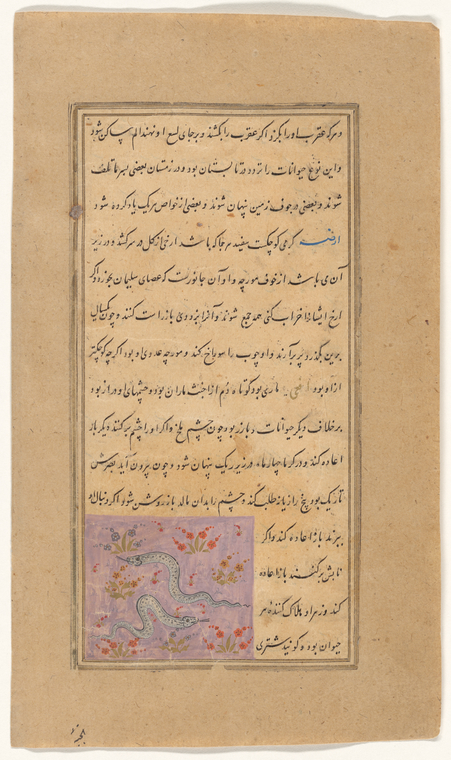 و هر که عقرب او را بگزد اگر عقرب را بکشند و بر جای لسع او نهند الم ساکن شود
و این نوع حیوانات را تردد در تابستان بود و در زمستان بعضی بسرما تلف
شوند و بعضی در جوف زمین پنهان شوند و بعضی از خواص هر یک یاد کرده شود
ارضه کرمی کوچکست سفید هر جا که باشد ازجی از کل در سر کشد و در زیر
آن می باشد از خوف مورچه و او آن جانورست که عصای سلیمان بخورد و اگر
ازج ایشان را خراب کنی همه جمع شوند و آنرا بزودی باز راست کنند و چون یکسال
برین بگذرد پر برآرند و او چوب را سوراخ کند و مورچه عدوی او بود اگر چه کوچکتر
از او بود افعی ماری بود کوتاه دم از اخبث ماران بود و چشمهای او دراز بود
بر خلاف دیگر حیوانات و بارز بود چون چشم ملخ و اگر او را چشم بر کنند دیگر باز
اعاده کند و در گرما چهار ماه در زیر ریک پنهان شود و چون بیرون آید بصرش
تاریک بود بیخ رازیانه طلب کند و چشم را بدان مالد باز روشن شود اگر دنبال او
ببرند باز اعاده کند و اگر
نابش برکنند باز اعاده
کند و زهر او هلاک کننده هر
حیوان بود و گویند شتری